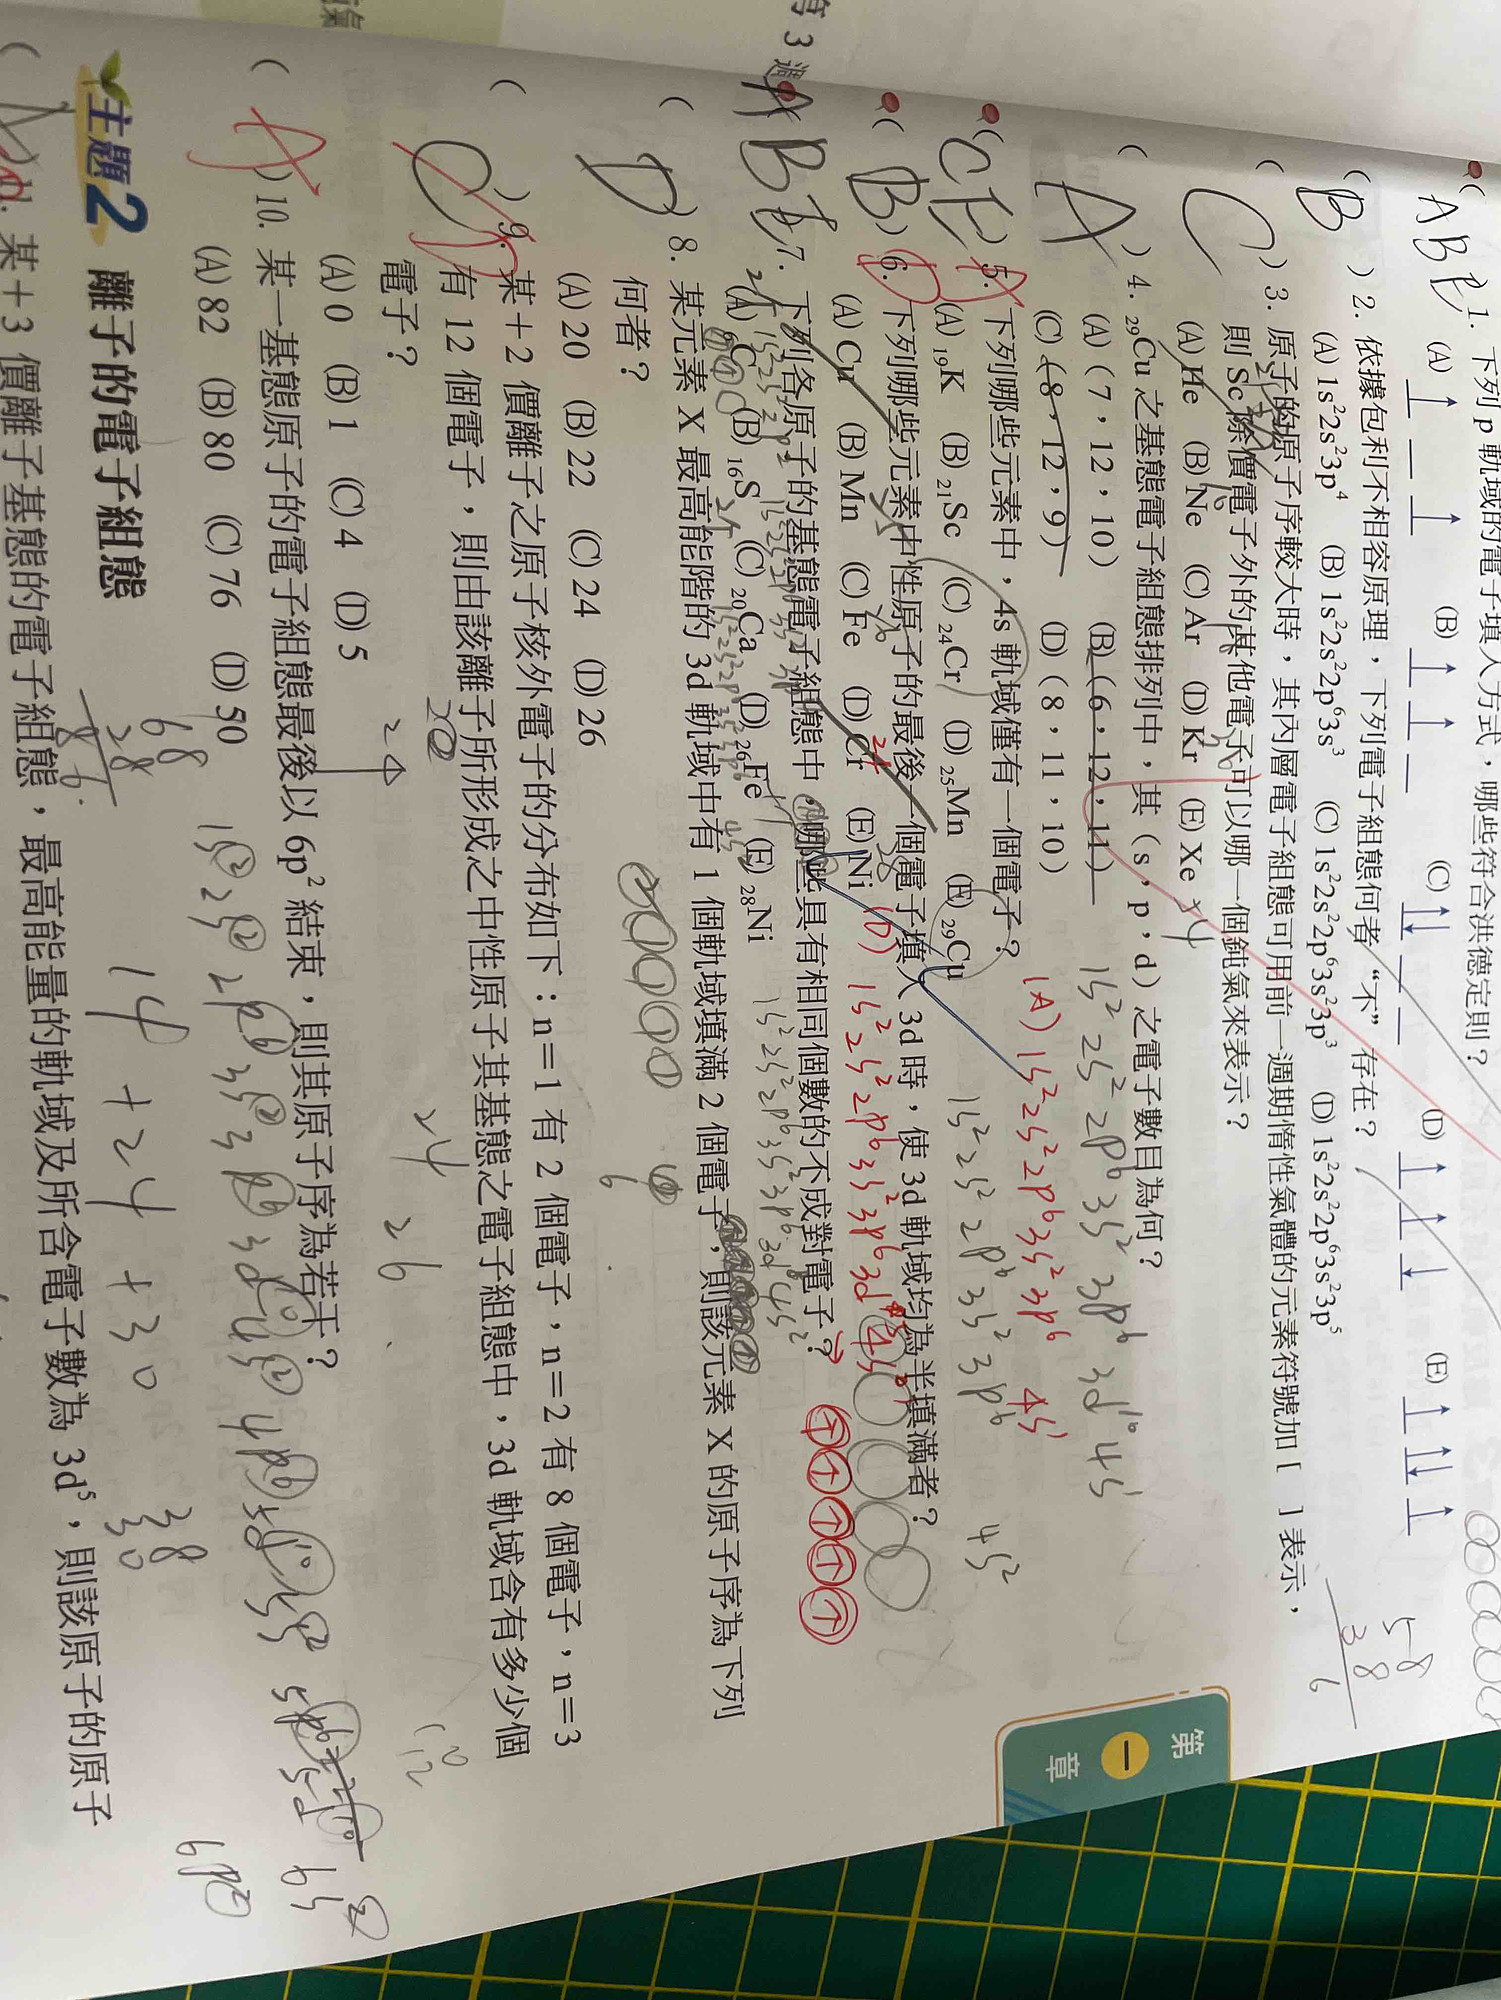 1. 下列 p 軌域的電子填入方式，哪些符合洪德定則？
ABE
(A) (B) (C) (D) (E)
( B ) 2. 依據包利不相容原理，下列電子組態何者“不”存在？
(A) 1s²2s²3p⁴ (B) 1s²2s²2p⁶3s³ (C) 1s²2s²2p⁶3s²3p³ (D) 1s²2s²2p⁶3s²3p⁵
58
38
6
( C ) 3. 原子的原子序較大時，其內層電子組態可用前一週期惰性氣體的元素符號加 [ ] 表示，
則 Sc 除價電子外的其他電子可以哪一個鈍氣來表示？
(A) He (B) Ne (C) Ar (D) Kr (E) Xe
( A ) 4. ₂₉Cu 之基態電子組態排列中，其（s，p，d）之電子數目為何？
1s² 2s² 2p⁶ 3s² 3p⁶ 3d¹⁰ 4s¹
(A)（7，12，10） (B)（6，12，11）
(C)（8，12，9） (D)（8，11，10）
(A) 1s² 2s² 2p⁶ 3s² 3p⁶ 4s¹
( CE ) 5. 下列哪些元素中，4s 軌域僅有一個電子？
1s² 2s² 2p⁶ 3s² 3p⁶ 4s²
(A) ₁₉K (B) ₂₁Sc (C) ₂₄Cr (D) ₂₅Mn (E) ₂₉Cu
( B ) 6. 下列哪些元素中性原子的最後一個電子填入 3d 時，使 3d 軌域均為半填滿者？
(A) Cu (B) Mn (C) Fe (D) Cr (E) Ni
24
28
(D) 1s² 2s² 2p⁶ 3s² 3p⁶ 3d
ABE 7. 下列各原子的基態電子組態中，哪些具有相同個數的不成對電子？
(A) ₆C (B) ₁₆S (C) ₂₀Ca (D) ₂₆Fe (E) ₂₈Ni
1s² 2s² 2p⁶ 3s² 3p⁶ 3d⁸ 4s²
( D ) 8. 某元素 X 最高能階的 3d 軌域中有 1 個軌域填滿 2 個電子，則該元素 X 的原子序為下列
何者？
6
(A) 20 (B) 22 (C) 24 (D) 26
( C ) 9. 某＋2 價離子之原子核外電子的分布如下：n＝1 有 2 個電子，n＝2 有 8 個電子，n＝3
有 12 個電子，則由該離子所形成之中性原子其基態之電子組態中，3d 軌域含有多少個
電子？
24
26
(A) 0 (B) 1 (C) 4 (D) 5
( A ) 10. 某一基態原子的電子組態最後以 6p² 結束，則其原子序為若干？
(A) 82 (B) 80 (C) 76 (D) 50
1s² 2s² 2p⁶ 3s² 3p⁶ 3d¹⁰ 4s² 4p⁶ 4d¹⁰ 5s² 5p⁶ 5d¹⁰ 6s²
6p²
68
28
14 + 24 + 30
38
30
主題2 離子的電子組態
1. 某＋3 價離子基態的電子組態，最高能量的軌域及所含電子數為 3d⁵，則該原子的原子
第
一
章